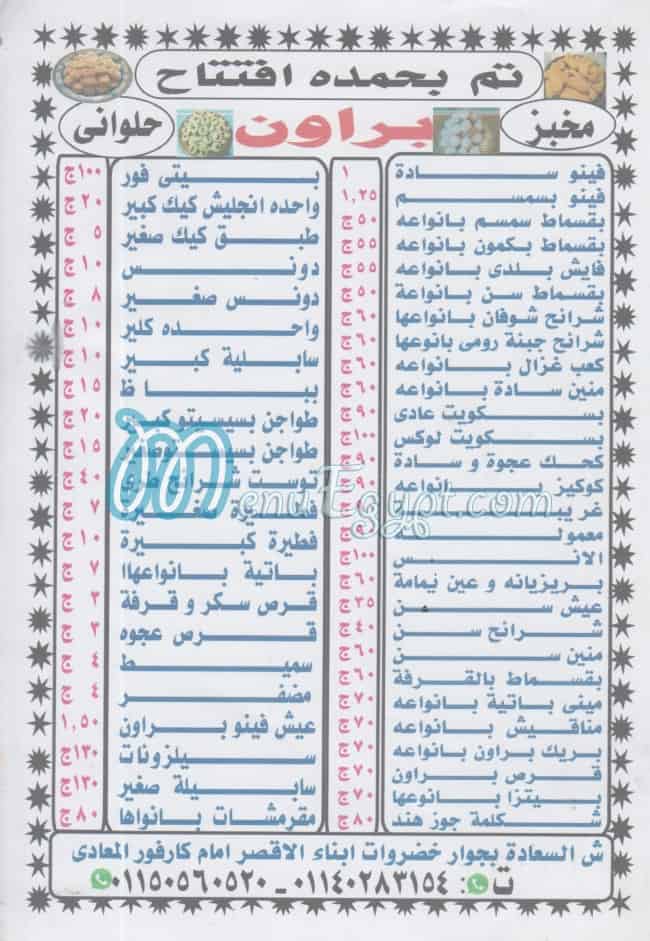 تم بحمده افتتاح
مخبز براون حلوانى
فينو سادة ١
فينو بسمسم ١,٢٥
بقسماط سمسم بانواعه ٥٠ج
بقسماط بكمون بانواعه ٥٥ج
فايش بلدى بانواعه ٥٥ج
بقسماط سن بانواعة ٥٠ج
شرائح شوفان بانواعها ٦٠ج
شرائح جبنة رومى بانوعها ٦٠ج
كعب غزال بانواعه ٦٠ج
منين سادة بانواعه ٦٠ج
بسكويت عادى ٩٠ج
بسكويت لوكس ١٠٠ج
كحك عجوة و سادة ٩٠ج
كوكيز بانواعه ٩٠ج
غريبة
معمول ٩٠ج
الانس ١٠٠ج
بريزيانه و عين نيمامة ٦٠ج
عيش سن ٣٥ج
شرائح سن ٤٠ج
منين سن ٦٠ج
بقسماط بالقرفة ٦٠ج
مينى باتية بانواعه ٧٠ج
مناقيش بانواعه ٧٠ج
بريك براون بانواعه ٧٠ج
قرص براون ٧٠ج
بيتزا بانوعها ٧٠ج
شكلمة جوز هند ٨٠ج
بيتى فور ١٠٠ج
واحده انجليش كيك كبير ٢٠ ج
طبق كيك صغير ٥ ج
دونس ١٠ ج
دونس صغير ٨ ج
واحده كلير ١٠ ج
سابلية كبير ١٠ ج
ببا ظ ١٥ ج
طواجن بسيسيتو كبير ٢٠ ج
طواجن ١٥ ج
توست شرائح طرى ٤٠ ج
فطيرة صغيرة ٧ ج
فطيرة كبيرة ١٠ ج
باتية بانواعهاا ٧ ج
قرص سكر و قرفة ٣ ج
قرص عجوه ٣ ج
سميط ٤ ج
مضفر ٤ ج
عيش فينو براون ١,٥٠
سيلزونات ١٣٠ج
سابيلة صغير ١٣٠ج
مقرمشات بانواها ٨٠ج
MenuEgypt.com
ش السعادة بجوار خضروات ابناء الاقصر امام كارفور المعادى
ت : ٠١١٤٠٢٨٣١٥٤ - ٠١١٥٠٥٦٠٥٢٠